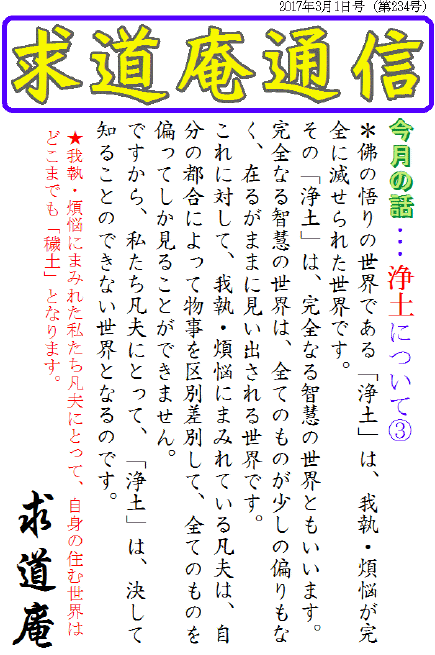 2017年3月1日号（第234号）
求道庵通信
今月の話…浄土について③
＊佛の悟りの世界である「浄土」は、我執・煩悩が完
全に滅せられた世界です。
その「浄土」は、完全なる智慧の世界ともいいます。
完全なる智慧の世界は、全てのものが少しの偏りもな
く、在るがままに見い出される世界です。
これに対して、我執・煩悩にまみれている凡夫は、自
分の都合によって物事を区別差別して、全てのものを
偏ってしか見ることができません。
ですから、私たち凡夫にとって、「浄土」は、決して
知ることのできない世界となるのです。
★我執・煩悩にまみれた私たち凡夫にとって、自身の住む世界は
どこまでも「穢土」となります。
求道庵